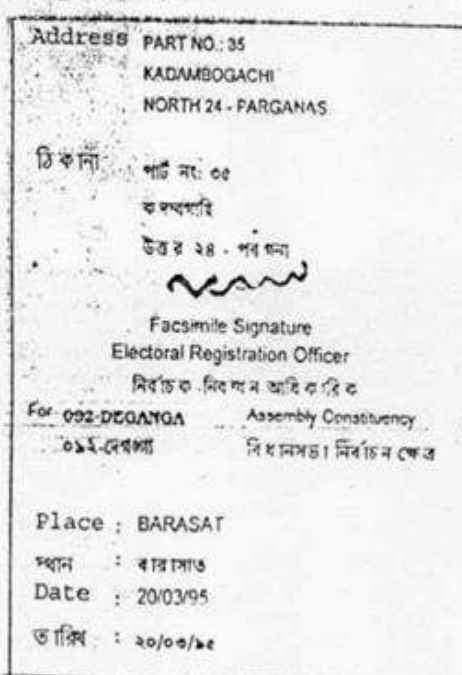 Address PART NO.: 35
KADAMBOGACHI
NORTH 24 - PARGANAS
ঠিকানা পার্ট নং: ৩৫
কদম্বগাছি
উত্তর ২৪ - পরগনা
Facsimile Signature
Electoral Registration Officer
নির্বাচক নিবন্ধন আধিকারিক
For 092-DEGANGA Assembly Constituency
০৯২-দেগঙ্গা বিধানসভা নির্বাচন ক্ষেত্র
Place : BARASAT
স্থান : বারাসাত
Date : 20/03/95
তারিখ : ২০/০৩/৯৫